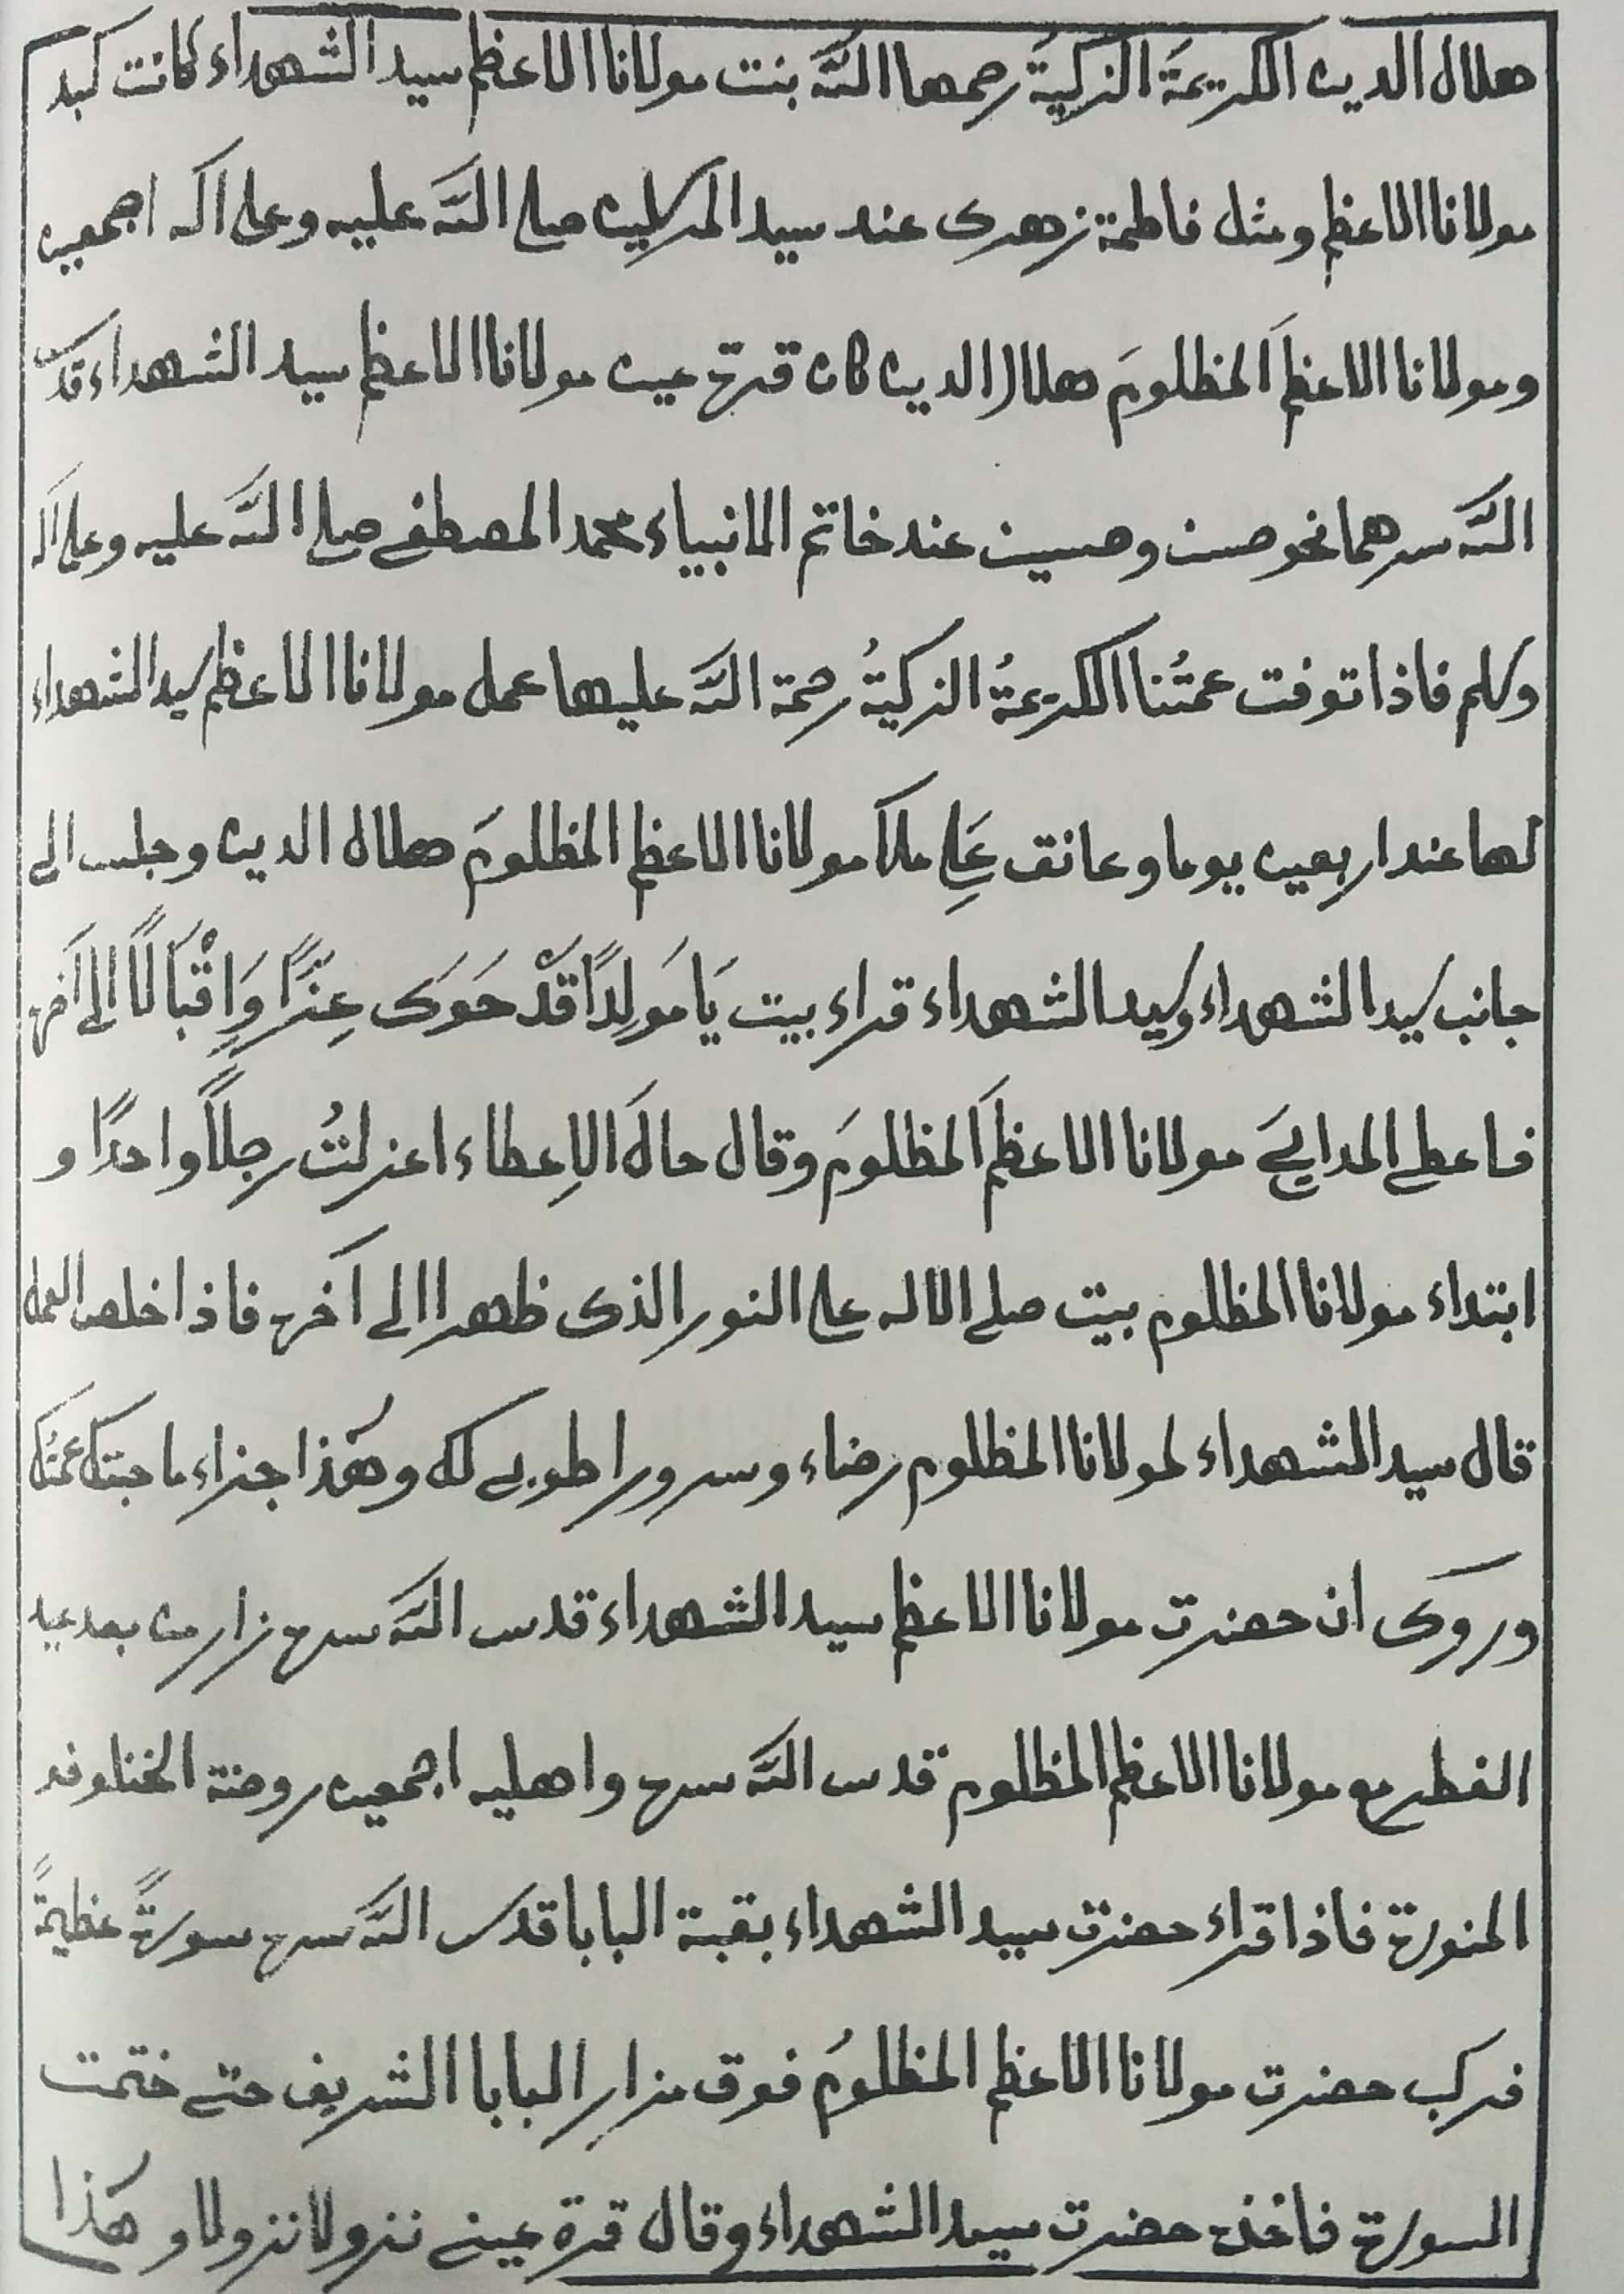 هلال الدين الكريمةَ الزكيةُ رحمها اللّه بنت مولانا الاعظم سيد الشهداء كانت كبد
مولانا الاعظم ومثل فاطمة زهرى عند سيد المرسلين صلى اللّه عليه وعلى آله اجمعين
ومولانا الاعظمَ المظلومَ هلال الدين كان قرة عين مولانا الاعظم سيد الشهداء قدس
اللّه سرهما نحو حسن وحسين عند خاتم الانبياء محمد المصطفى صلى اللّه عليه وعلى آله
وسلم فاذا توفت عمتُنا الكريمةُ الزكيةُ رحمة اللّه عليها عمل مولانا الاعظم سيد الشهداء
لها عند اربعين يوما وعانق عَلىِ ملأ مولانا الاعظم المظلومَ هلال الدين وجلس الى
جانب سيد الشهداء وسيد الشهداء قراء بيت يَا مَولِدًا قَدْ حَوَى عِزًّا وَاِقْبَالًا الى آخره
فاعطى المدايحَ مولانا الاعظمَ المظلومَ وقال حالَ الاِعطاء اعزلتُ رجلاً واحدًا و
ابتداء مولانا المظلوم بيت صلى الاله على النور الذى ظهرا الى آخره فاذا خلص العمل
قال سيد الشهداء لمولانا المظلوم رضاء وسرورا طوبى لك وهٰذا جزاء ما حبتك عمتُك
وروى ان حضرت مولانا الاعظم سيد الشهداء قدس اللّه سره زار من بعد عيد
الفطر مع مولانا الاعظم المظلوم قدس اللّه سره واهليه اجمعين روضة
المنورة فاذا قراء حضرت سيد الشهداء بقبة البابا قدس اللّه سره سورةً عظيمةً
فركب حضرت مولانا الاعظم المظلومُ فوق مزار البابا الشريف حتى ختمت
السورة فاخذه حضرت سيد الشهداء وقال قرة عينى نزولا نزولا و هكذا